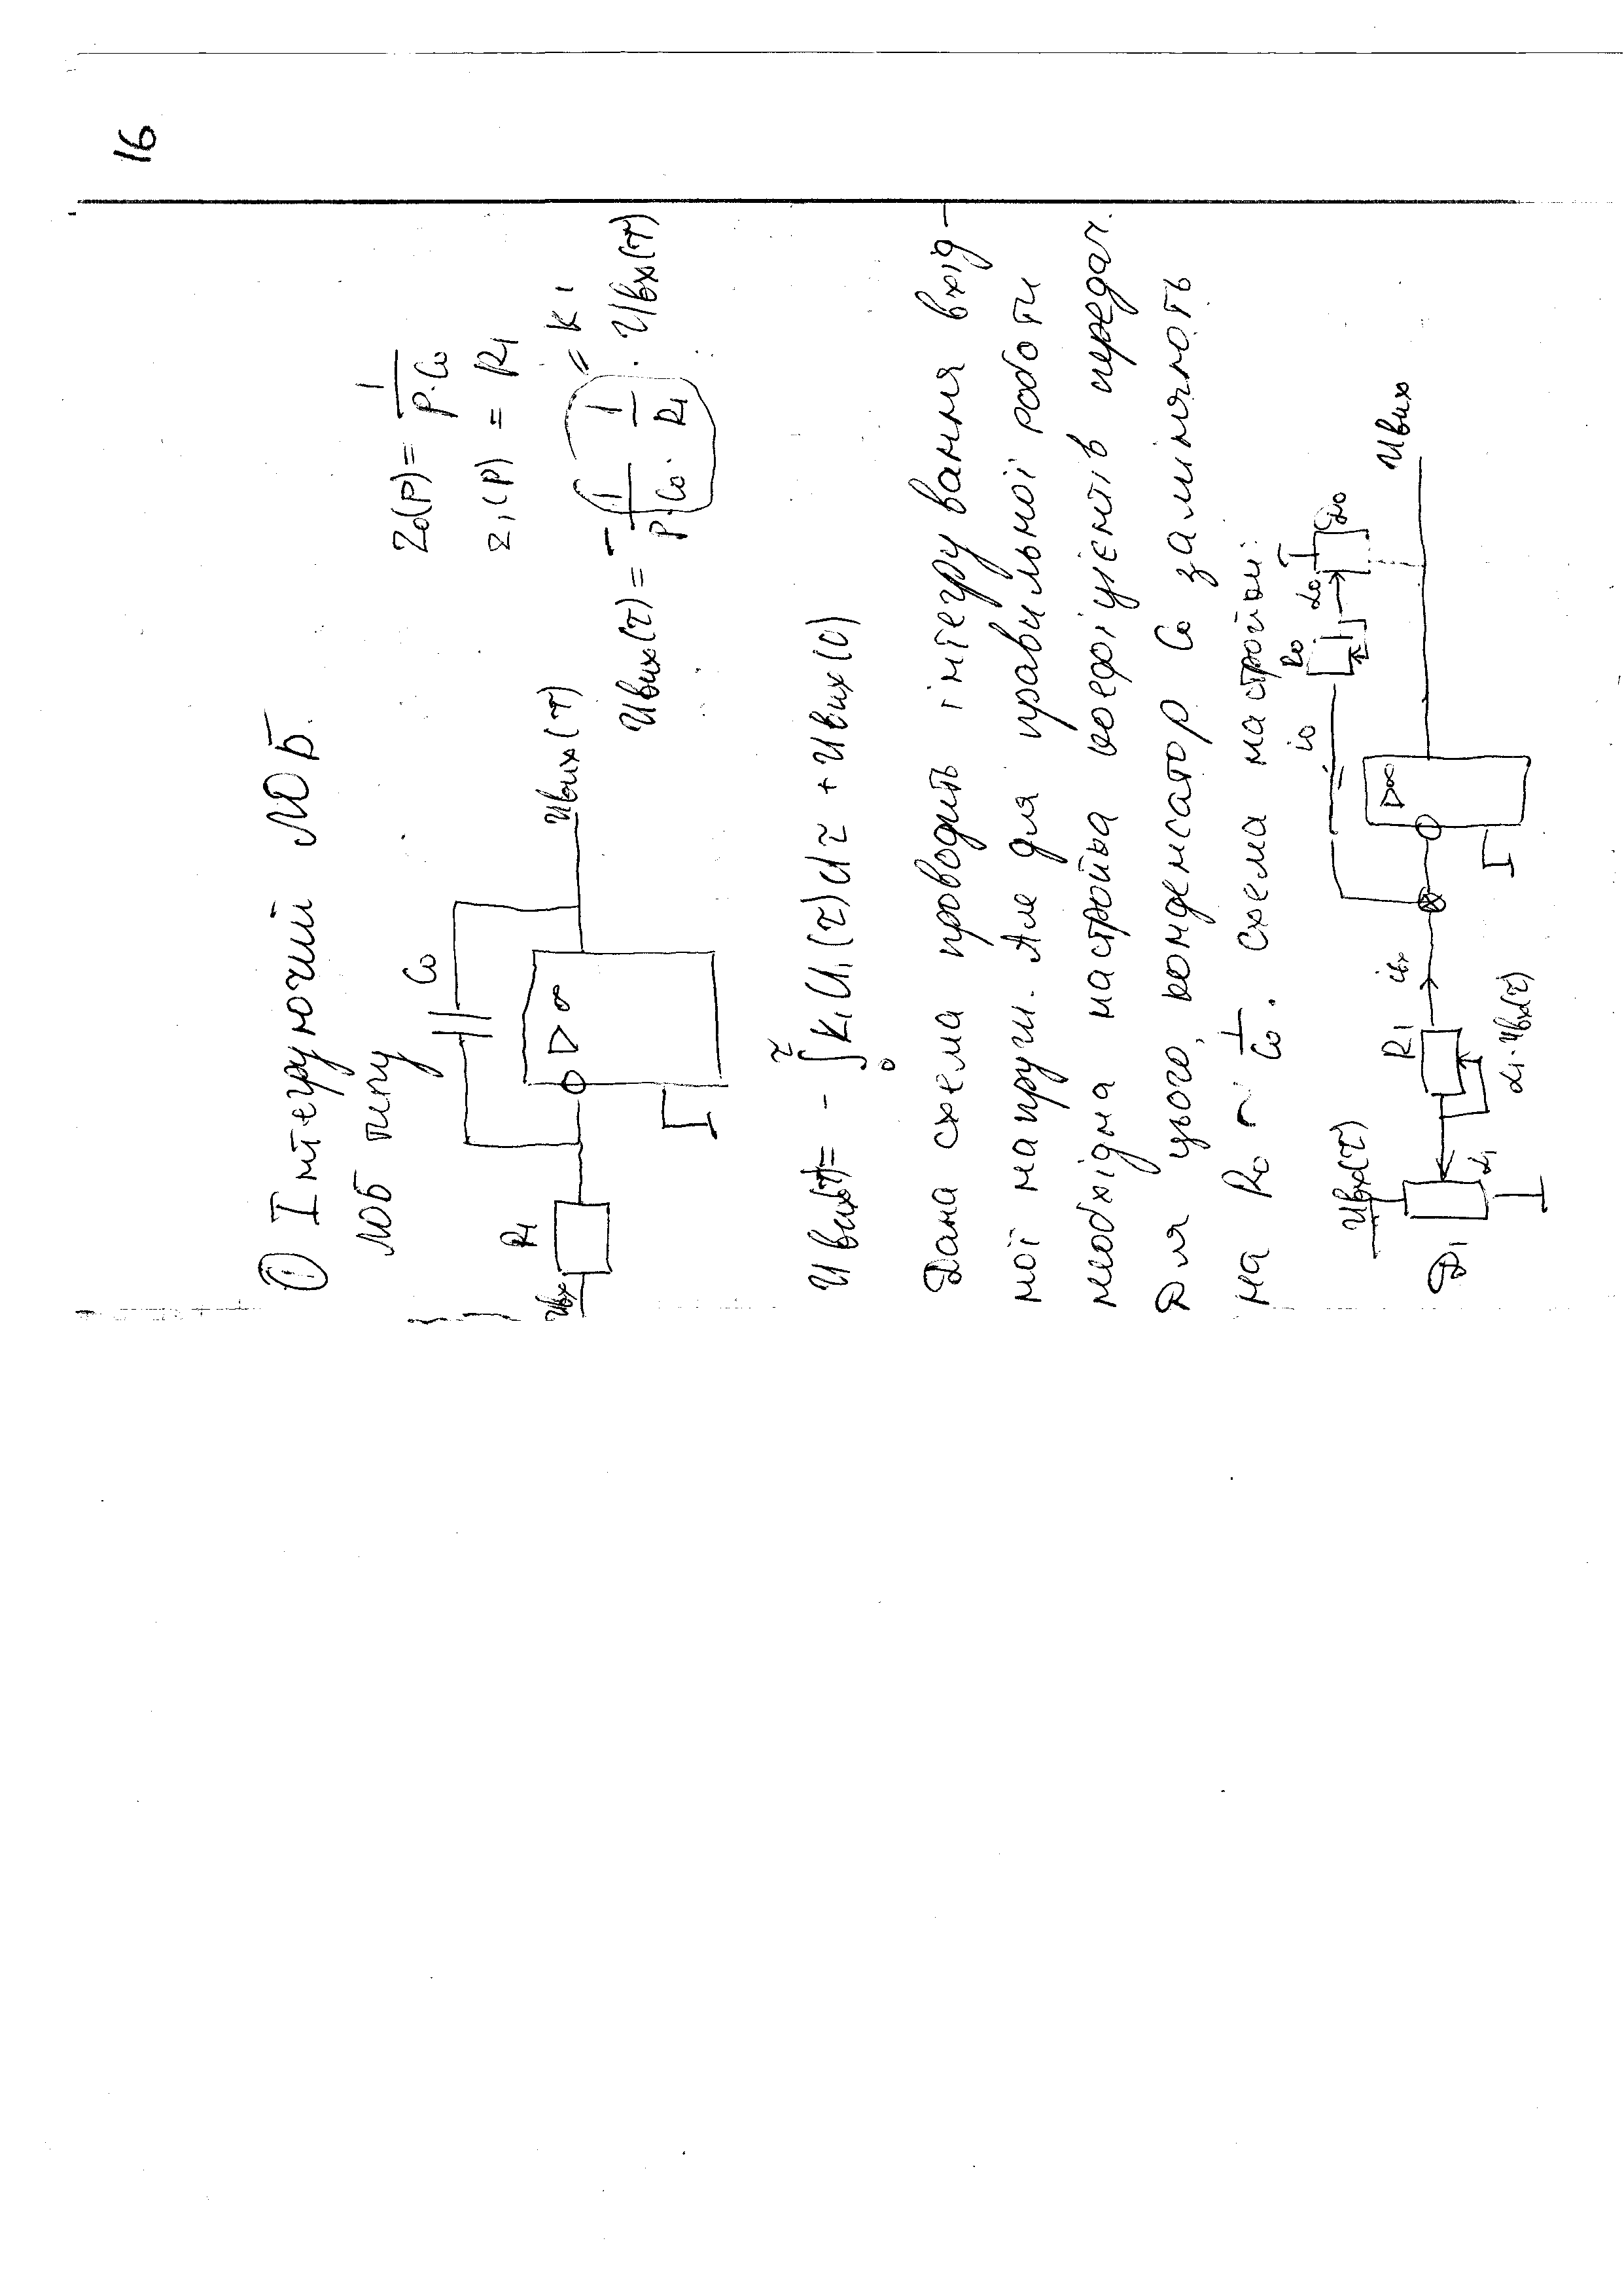 16
① Інтегруючий ЛОБ.
ЛОБ типу
Z₀(P) = 1/(P·C₀)
Z₁(P) = R₁
Uвх
R₁
C₀
▷∞
Uвих(τ)
Uвих(τ) = - 1/(P·C₀) · 1/R₁ · Uвх(τ)
= K₁
Uвих(τ) = - ∫₀^τ K₁U₁(τ)dτ + Uвих(0)
Дана схема проводить інтегрування вхід-
ної напруги. Але для правильної роботи
необхідна настройка коефіцієнтів передач.
Для цього, конденсатор C₀ замінюють
на R₀ ~ 1/C₀. Схема настройки:
Uвх(τ)
D₁
α₁
R₁
α₁·Uвх(τ)
iвх
i₀
R₀
α₀
D₀
▷∞
Uвих